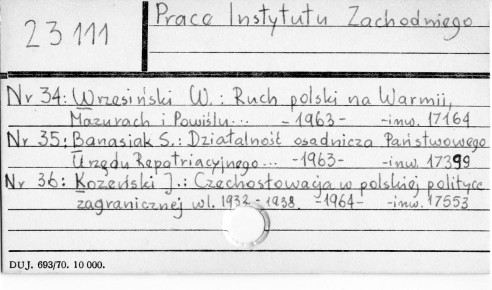 23 111
Prace Instytutu Zachodniego
Nr 34: Wrzesiński W.: Ruch polski na Warmii,
Mazurach i Powiślu... -1963- -inw. 17164
Nr 35: Banasiak S.: Działalność osadnicza Państwowego
Urzędu Repatriacyjnego... -1963- -inw. 17399
Nr 36: Kozeński J.: Czechosłowacja w polskiej polityce
zagranicznej w l. 1932-1938. -1964- -inw. 17553
DUJ. 693/70. 10 000.